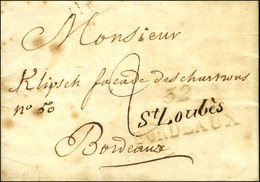 Monsieur
Klipsch façade des chartrons
n° 50
2
32
St Loubès
BORDEAUX
Bordeaux